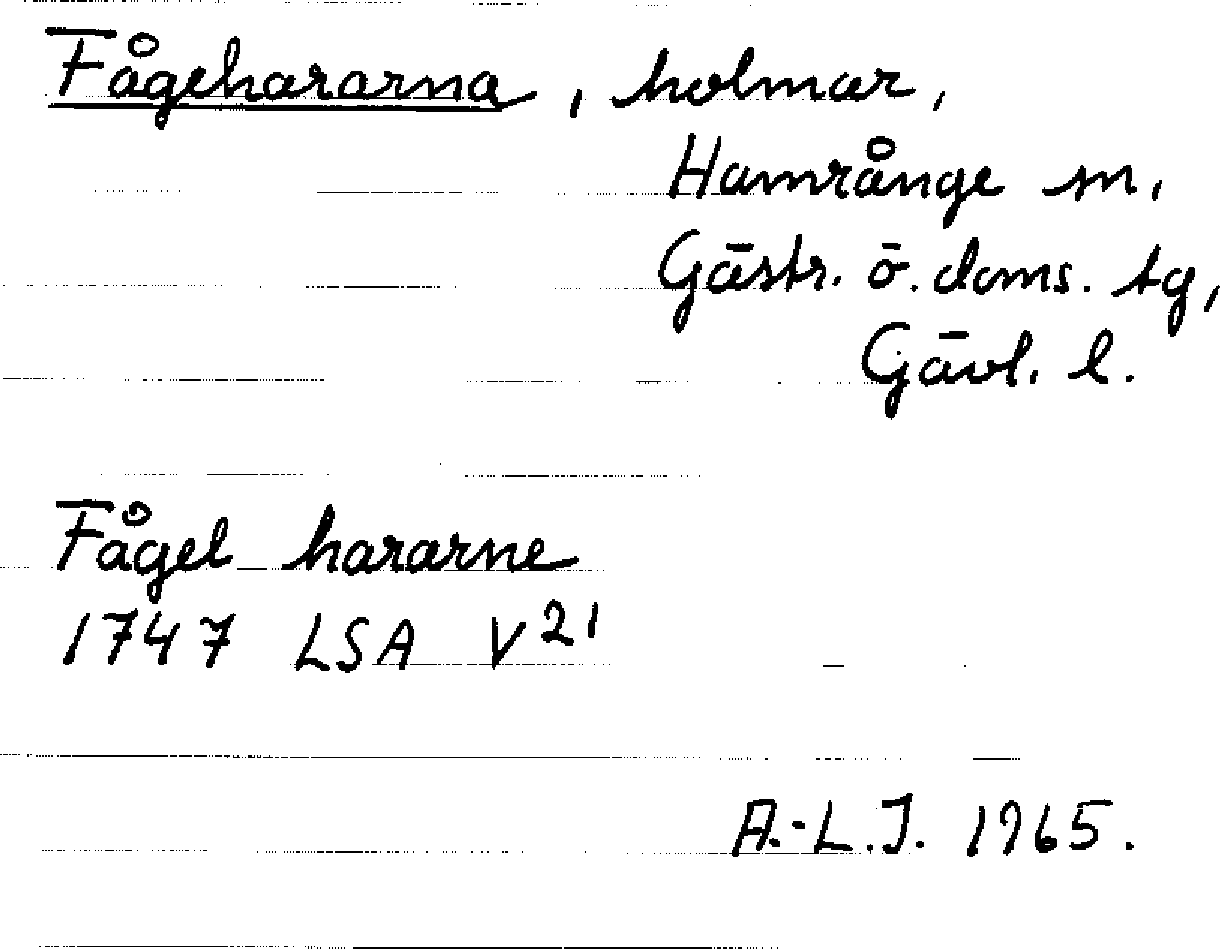 Fågehararna, holmar,
Hamrånge sn,
Gästr. ö. doms. tg,
Gävl. l.
Fågel hararne
1747 LSA V²¹
A.-L.J. 1965.